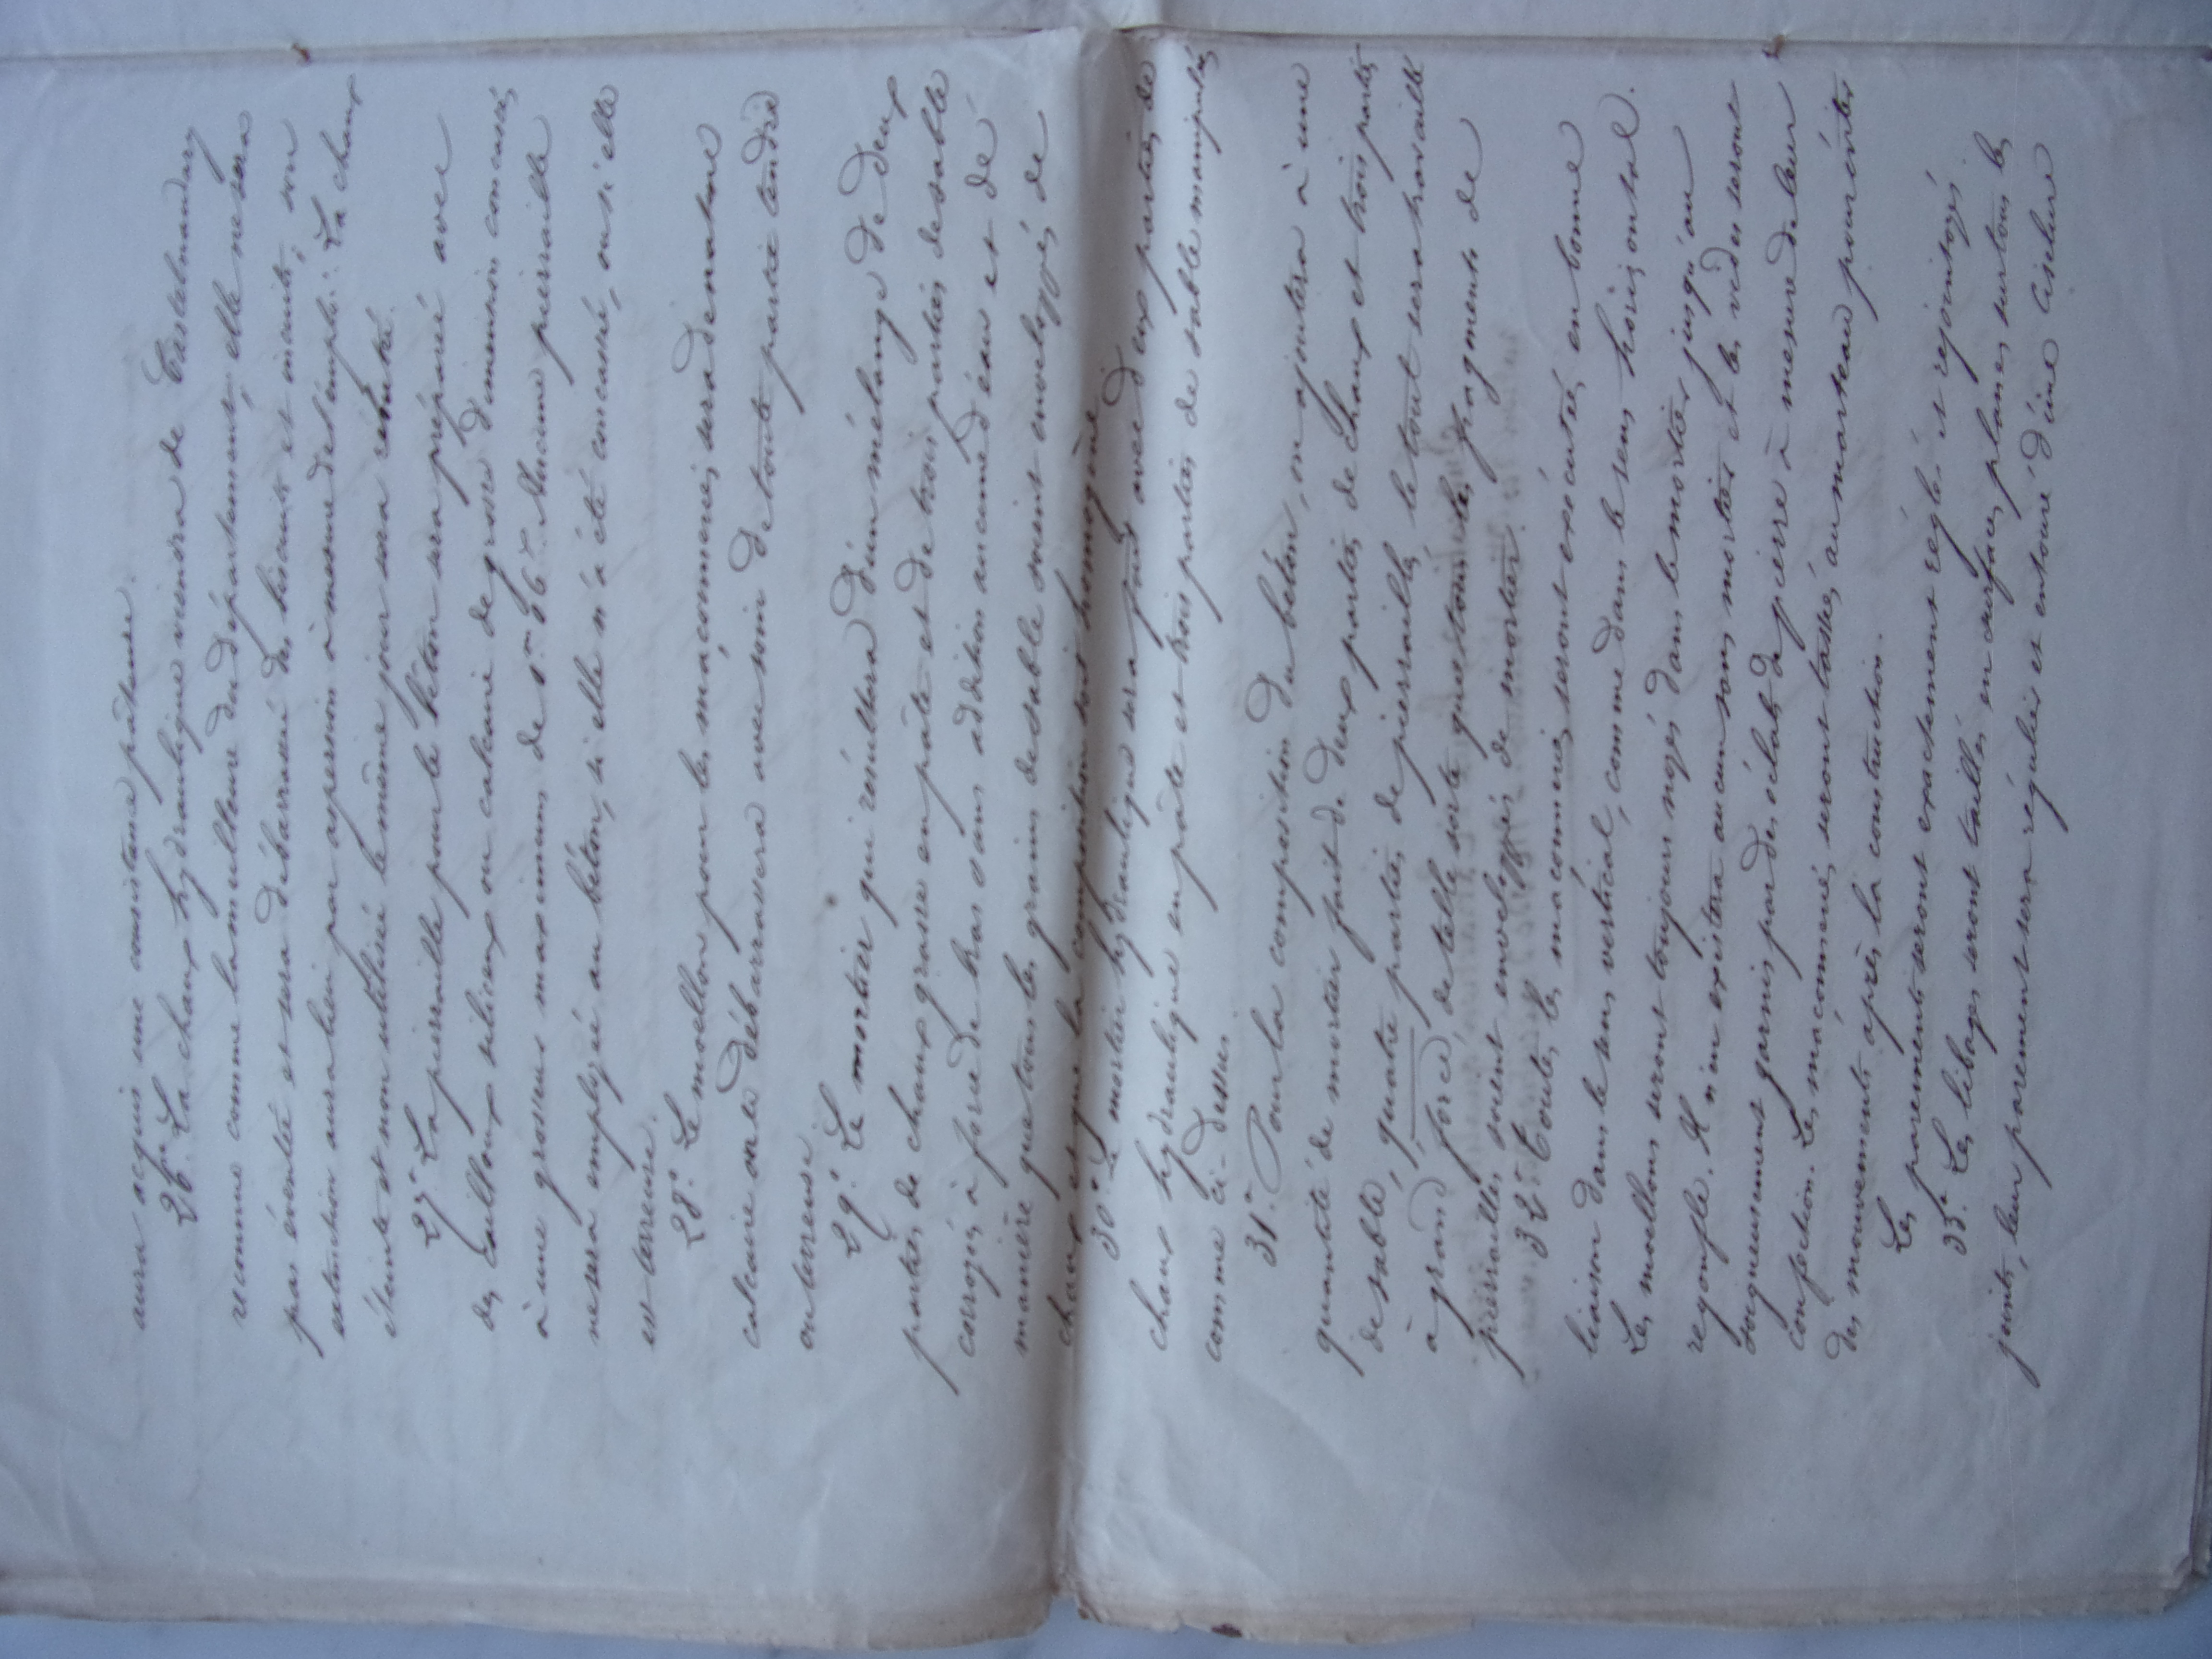 aura acquis une consistance pâteuse.
26° La chaux hydraulique viendra de Castelnaudary
reconnue comme la meilleure du département, elle ne sera
pas éventée et sera débarrassée des biscuits et incuits, son
extinction aura lieu par aspersion à mesure de l'emploi. La chaux
éteinte et non utilisée le même jour sera rebutée.
27° La pierraille pour le béton sera préparée avec
des cailloux siliceux ou calcaire de grosse dimension concassés
à une grosseur maximum de 0m 06c. Aucune pierraille
ne sera employée au béton, si elle n'a été concassée, ou si elle
est terreuse.
28° Le moellon pour les maçonneries sera de nature
calcaire on le débarrassera avec soin de toute partie tendre
ou terreuse.
29° Le mortier qui résultera d'un mélange de deux
parties de chaux grasse en pâte et de trois parties de sable
corroyés à force de bras sans addition aucune d'eau et de
manière que tous les grains de sable soient enveloppés de
chaux et que la composition soit homogène.
30° Le mortier hydraulique sera fait avec deux parties de
chaux hydraulique en pâte et trois parties de sable manipulés
comme ci-dessus.
31° Pour la composition du béton, on ajoutera à une
quantité de mortier fait de deux parties de chaux et trois parties
de sable, quatre parties de pierrailles, le tout sera travaillé
à grand force, de telle sorte que tous les fragments de
pierrailles soient enveloppés de mortier.
32° Toutes les maçonneries seront exécutées en bonne
liaison dans le sens vertical, comme dans le sens horizontal.
Les moellons seront toujours noyés dans le mortier jusqu'au
regonfle. Il n'en existera aucun sans mortier et les vides seront
soigneusement garnis par des éclats de pierre à mesure de leur
confection. Les maconneries seront tassées au marteau pour éviter
des mouvements après la construction.
Les parements seront exactement réglés et rejointoyés.
33° Les libages seront taillés en surfaces planes sur tous les
joints, leur parement sera régulier et entouré d'une ciselure